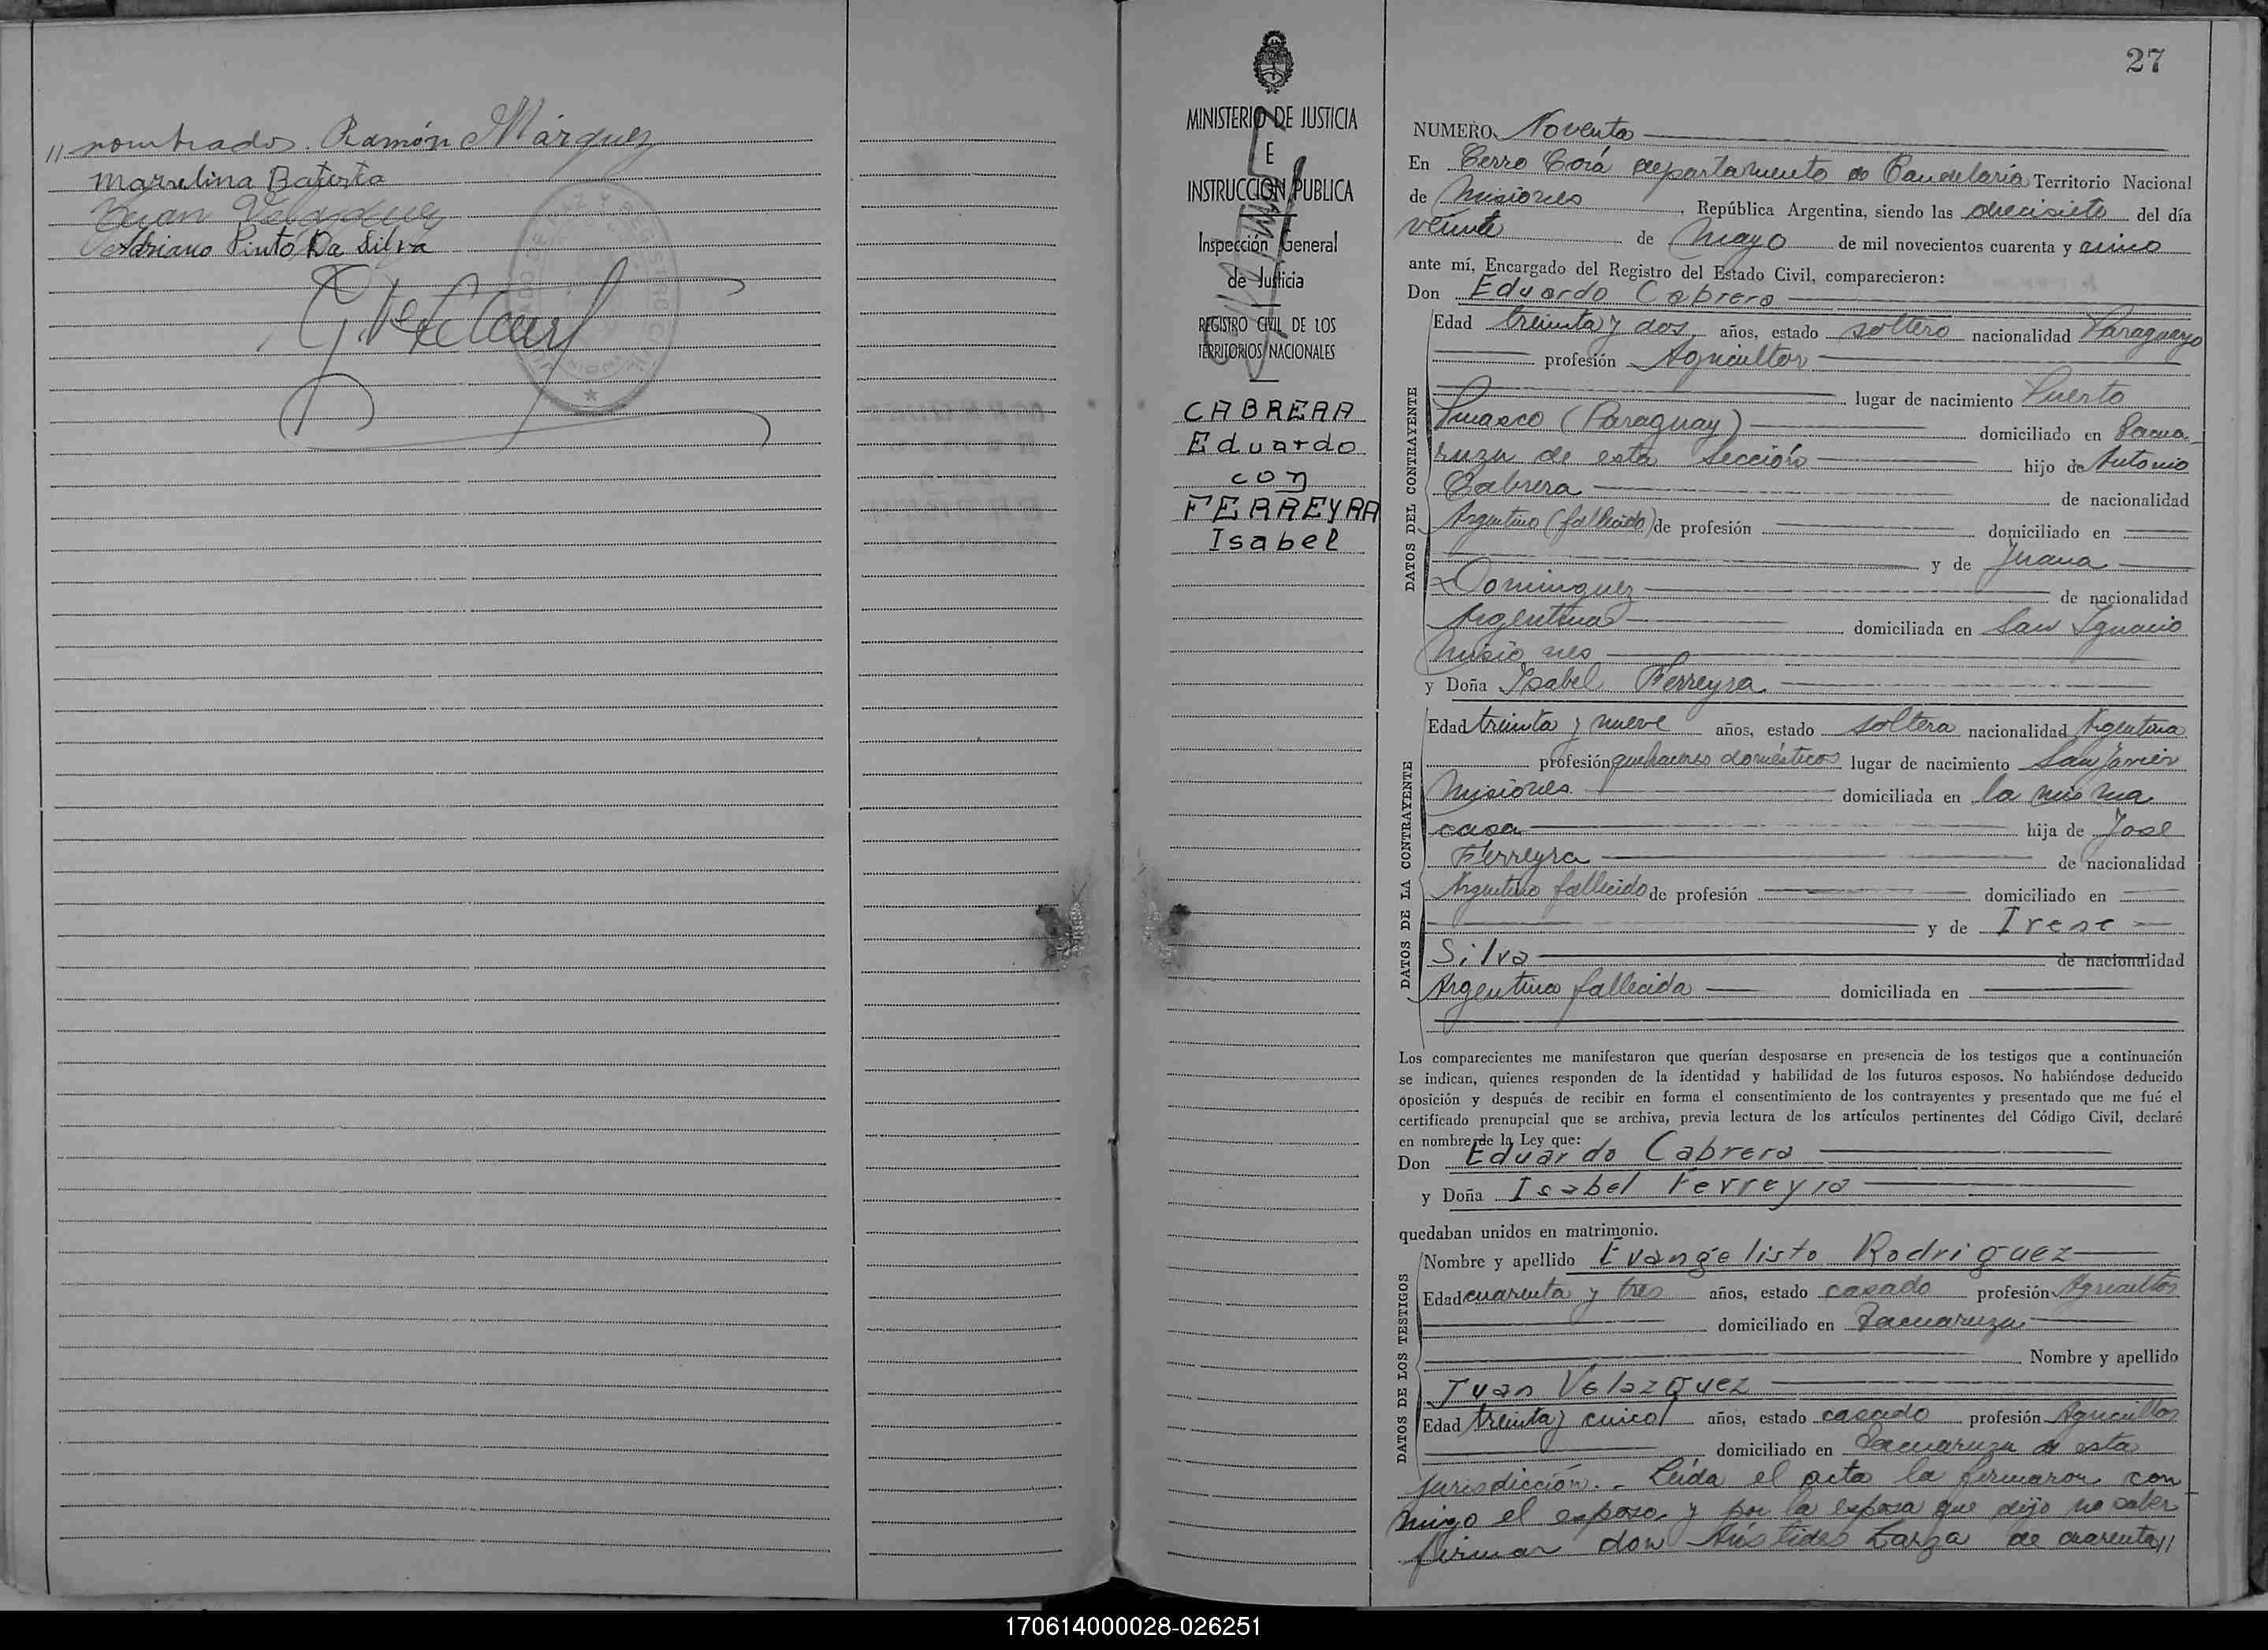 " nombrados. Ramón Márquez
Marselina Batista
Juan Velazquez
Adriano Pinto Da Silva
MINISTERIO DE JUSTICIA
E
INSTRUCCION PUBLICA
Inspección General
de Justicia
REGISTRO CIVIL DE LOS
TERRITORIOS NACIONALES
CABRERA
Eduardo
con
FERREYRA
Isabel
27
NUMERO Noventa
En Cerro Corá departamento de Candelaria Territorio Nacional
de Misiones, República Argentina, siendo las diecisiete del día
veinte de Mayo de mil novecientos cuarenta y cinco
ante mí, Encargado del Registro del Estado Civil, comparecieron:
Don Eduardo Cabrera
DATOS DEL CONTRAYENTE
Edad treinta y dos años, estado soltero nacionalidad Paraguayo
profesión Agricultor
lugar de nacimiento Puerto
Pinasco (Paraguay) domiciliado en Tacua-
ruzu de esta sección hijo de Antonio
Cabrera de nacionalidad
Argentino (fallecido) de profesión domiciliado en
y de Juana
Dominguez de nacionalidad
Argentina domiciliada en San Ignacio
Misiones
y Doña Isabel Ferreyra
DATOS DE LA CONTRAYENTE
Edad treinta y nueve años, estado soltera nacionalidad Argentina
profesión quehaceres domésticos lugar de nacimiento San Javier
Misiones domiciliada en la misma
casa hija de José
Ferreyra de nacionalidad
Argentino fallecido de profesión domiciliado en
y de Irene
Silva de nacionalidad
Argentina fallecida domiciliada en
Los comparecientes me manifestaron que querían desposarse en presencia de los testigos que a continuación
se indican, quienes responden de la identidad y habilidad de los futuros esposos. No habiéndose deducido
oposición y después de recibir en forma el consentimiento de los contrayentes y presentado que me fué el
certificado prenupcial que se archiva, previa lectura de los artículos pertinentes del Código Civil, declaré
en nombre de la Ley que:
Don Eduardo Cabrera
y Doña Isabel Ferreyra
quedaban unidos en matrimonio.
DATOS DE LOS TESTIGOS
Nombre y apellido Evangelisto Rodriguez
Edad cuarenta y tres años, estado casado profesión Agricultor
domiciliado en Tacuaruzu
Nombre y apellido
Juan Velazquez
Edad treinta y cinco años, estado casado profesión Agricultor
domiciliado en Tacuaruzu de esta
jurisdicción.- Leída el acta la firmaron con
migo el esposo y por la esposa que dijo no saber
firmar don Aristides Zarza de cuarenta "
170614000028-026251